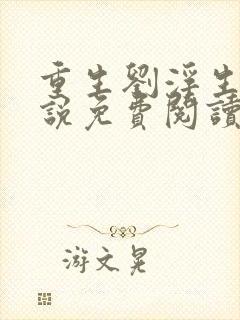 重生劉淫生
說免費閱讀
游文晃